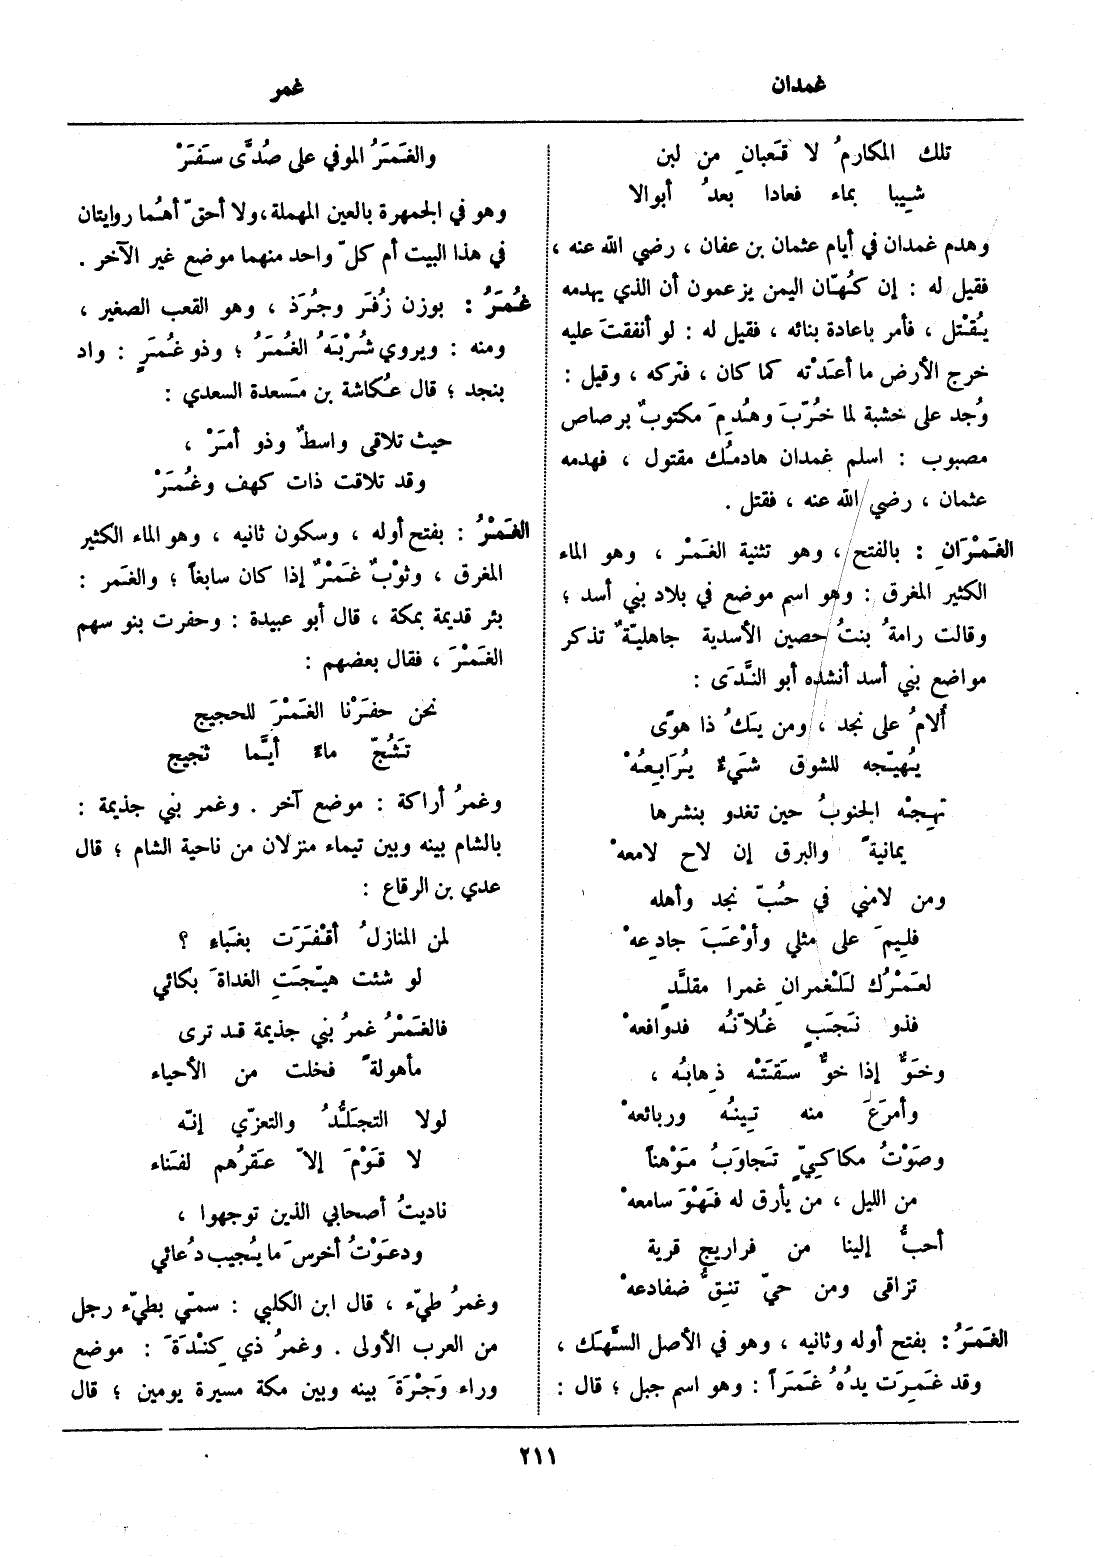 غمدان
غمر
تلك المكارمُ لا قَعبانِ من لبن
شيبا بماء فعادا بعدُ أبوالا
وهدم غمدان في أيام عثمان بن عفان ، رضي الله عنه ،
فقيل له : إن كُهّان اليمن يزعمون أن الذي يهدمه
يُقْتل ، فأمر باعادة بنائه ، فقيل له : لو أنفقتَ عليه
خرج الأرض ما أعَدْته كما كان ، فتركه ، وقيل :
وُجد على خشبة لما خُرّبَ وهُدِمَ مكتوبٌ برصاص
مصبوب : اسلم غمدان هادمُك مقتول ، فهدمه
عثمان ، رضي الله عنه ، فقتل .
الغَمْرَانِ : بالفتح ، وهو تثنية الغَمْر ، وهو الماء
الكثير المغرق : وهو اسم موضع في بلاد بني أسد ؛
وقالت رامةُ بنتُ حصين الأسدية جاهليّةٌ تذكر
مواضع بني أسد أنشده أبو النَّدَى :
أُلامُ على نجد ، ومن يَكُ ذا هوًى
يُهيّجه للشوق شيَءٌ يُرَابِعُهْ
تهِجْه الجنوبُ حين تغدو بنشرها
يمانيةً والبرق إن لاح لامعهْ
ومن لامني في حُبّ نجد وأهله
فليمَ على مثلي وأوْعَبَ جادِعهْ
لعَمْرُك لَلْغمرانِ غمرا مقلَّدٍ
فذو نَجَبٍ غُلاّنُه فدوافعهْ
وخَوٌّ إذا خوٌّ سَقَتْه ذِهابُه ،
وأمرَعَ منه تِينُه وربائعهْ
وصَوْتُ مكاكيٍّ تَجاوَبُ مَوْهناً
من الليل ، من يأرق له فَهْوَ سامعهْ
أحبُّ إلينا من فراريج قرية
تزاقى ومن حيّ تنِقُّ ضفادعهْ
الغَمَرُ : بفتح أوله وثانيه ، وهو في الأصل السَّهَك ،
وقد غَمِرَت يدُهُ غَمَراً : وهو اسم جبل ؛ قال :
والغَمَرُ الموفي على صُدًّى سَفَرْ
وهو في الجمهرة بالعين المهملة ، ولا أحقّ أهُما روايتان
في هذا البيت أم كلّ واحد منهما موضع غير الآخر .
غُمَرُ : بوزن زُفَر وجُرَذ ، وهو القعب الصغير ،
ومنه : ويروي شُرْبَهُ الغُمَرُ ؛ وذو غُمَرٍ : واد
بنجد ؛ قال عُكاشة بن مَسعدة السعدي :
حيث تلاقى واسطٌ وذو أمَرْ ،
وقد تلاقت ذات كهف وغُمَرْ
الغَمْرُ : بفتح أوله ، وسكون ثانيه ، وهو الماء الكثير
المغرق ، وثوْبٌ غَمْرٌ إذا كان سابغاً ؛ والغَمر :
بئر قديمة بمكة ، قال أبو عبيدة : وحفرت بنو سهم
الغَمْرَ ، فقال بعضهم :
نحن حفَرْنا الغَمْرَ للحجيج
تَشُجّ ماءً أيَّما ثجيج
وغمرُ أراكة : موضع آخر . وغمر بني جذيمة :
بالشام بينه وبين تيماء منزلان من ناحية الشام ؛ قال
عدي بن الرقاع :
لمن المنازلُ أقْفَرَت بغَباءِ ؟
لو شئت هيّجَتِ الغداةَ بكائي
فالغَمْرُ غمرُ بني جذيمة قد ترى
مأهولةً فخلت من الأحياء
لولا التجَلُّدُ والتعزّي إنّه
لا قَوْمَ إلاّ عَقرُهم لفَناء
ناديتُ أصحابي الذين توجهوا ،
ودعَوْتُ أخرسَ ما يُجيب دُعائي
وغمرُ طيّء ، قال ابن الكلبي : سمّي بطيّء رجل
من العرب الأولى . وغمرُ ذي كِنْدَةَ : موضع
وراء وَجْرَةَ بينه وبين مكة مسيرة يومين ؛ قال
٢١١